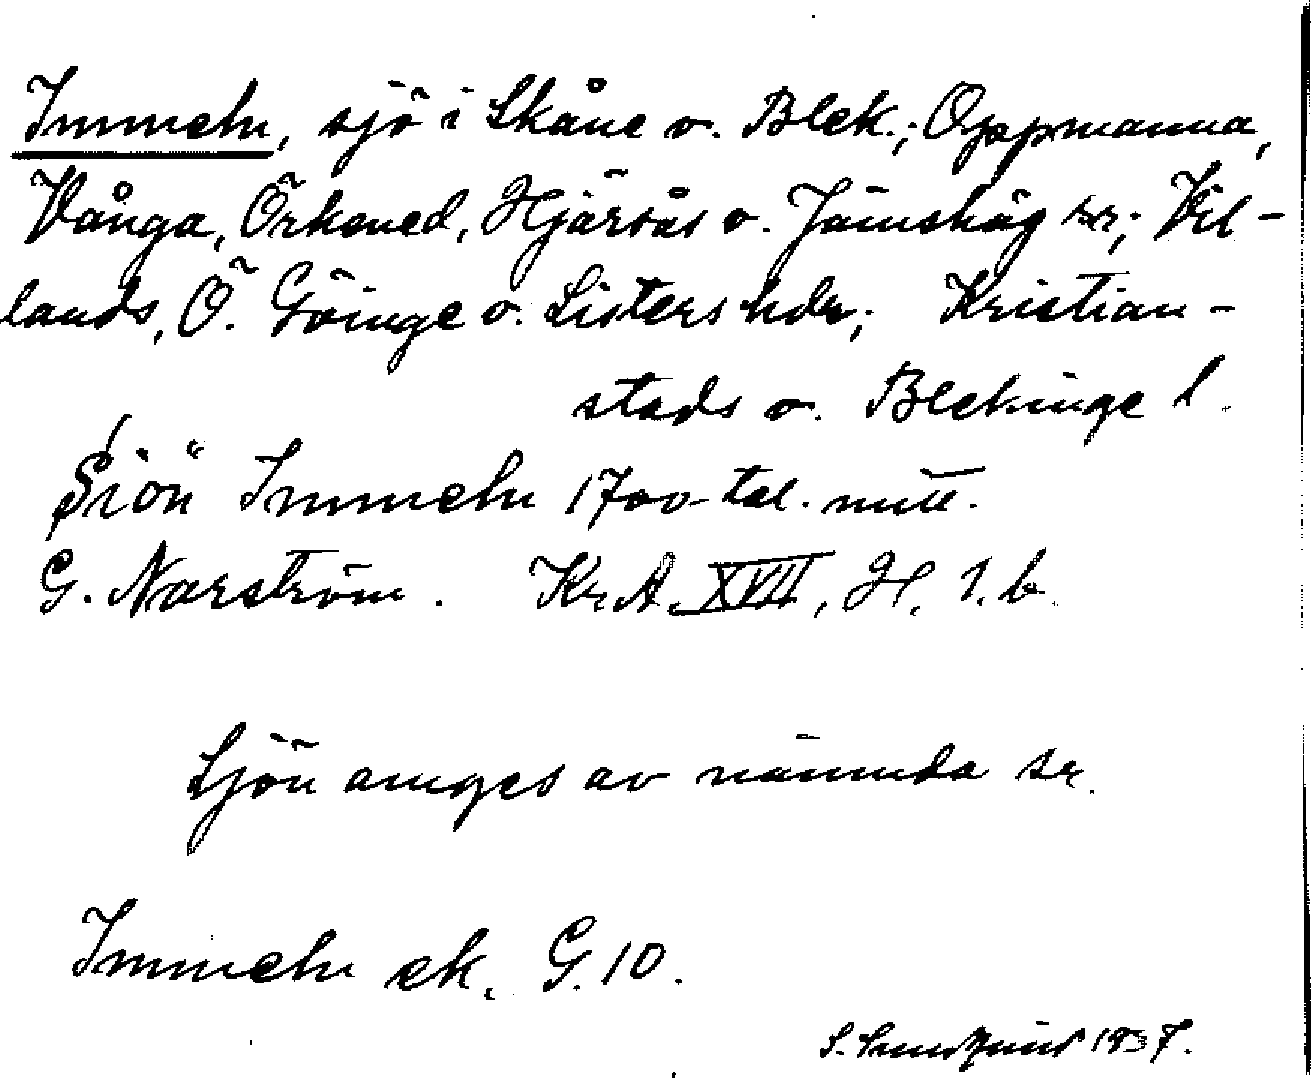 Immeln, sjö i Skåne o. Blek.; Oppmanna,
Vånga, Örkened, Hjärsås o. Jämshög snr; Vil-
lands, Ö. Göinge o. Listers hdr; Kristian-
stads o. Blekinge l.
Siön Immeln 1700-tal. mitt.
G. Narström. Kr.A. XVII, H. 1. b.
Sjön omges av nämnda snr.
Immeln ek. G. 10.
S. 1937.